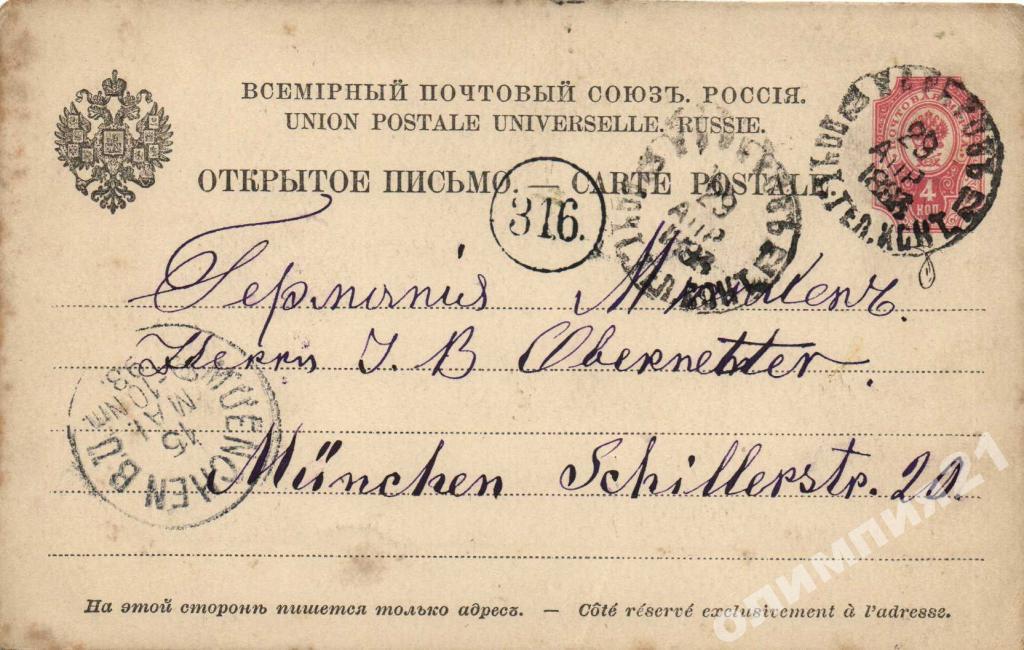 ВСЕМІРНЫЙ ПОЧТОВЫЙ СОЮЗЪ. РОССІЯ.
UNION POSTALE UNIVERSELLE. RUSSIE.
ОТКРЫТОЕ ПИСЬМО. — CARTE POSTALE
316.
29
АПР
1893
4
КОП.
Германія Мюнхенъ.
Herrn J. B Obernetter.
MUENCHEN B.U.
15
MAI
93.
München Schillerstr. 20.
На этой сторонѣ пишется только адресъ. — Côté réservé exclusivement à l'adresse.
олимпия21